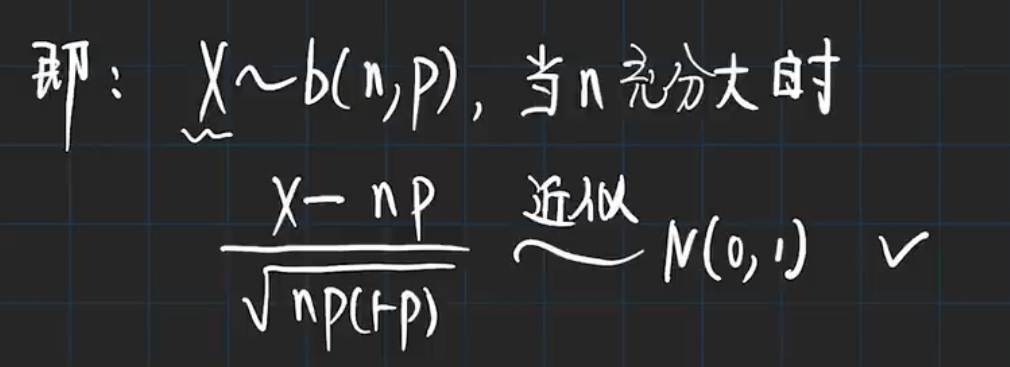 即: X~b(n,p), 当n充分大时
(X-np)/√(np(1-p)) 近似~ N(0,1) ✓